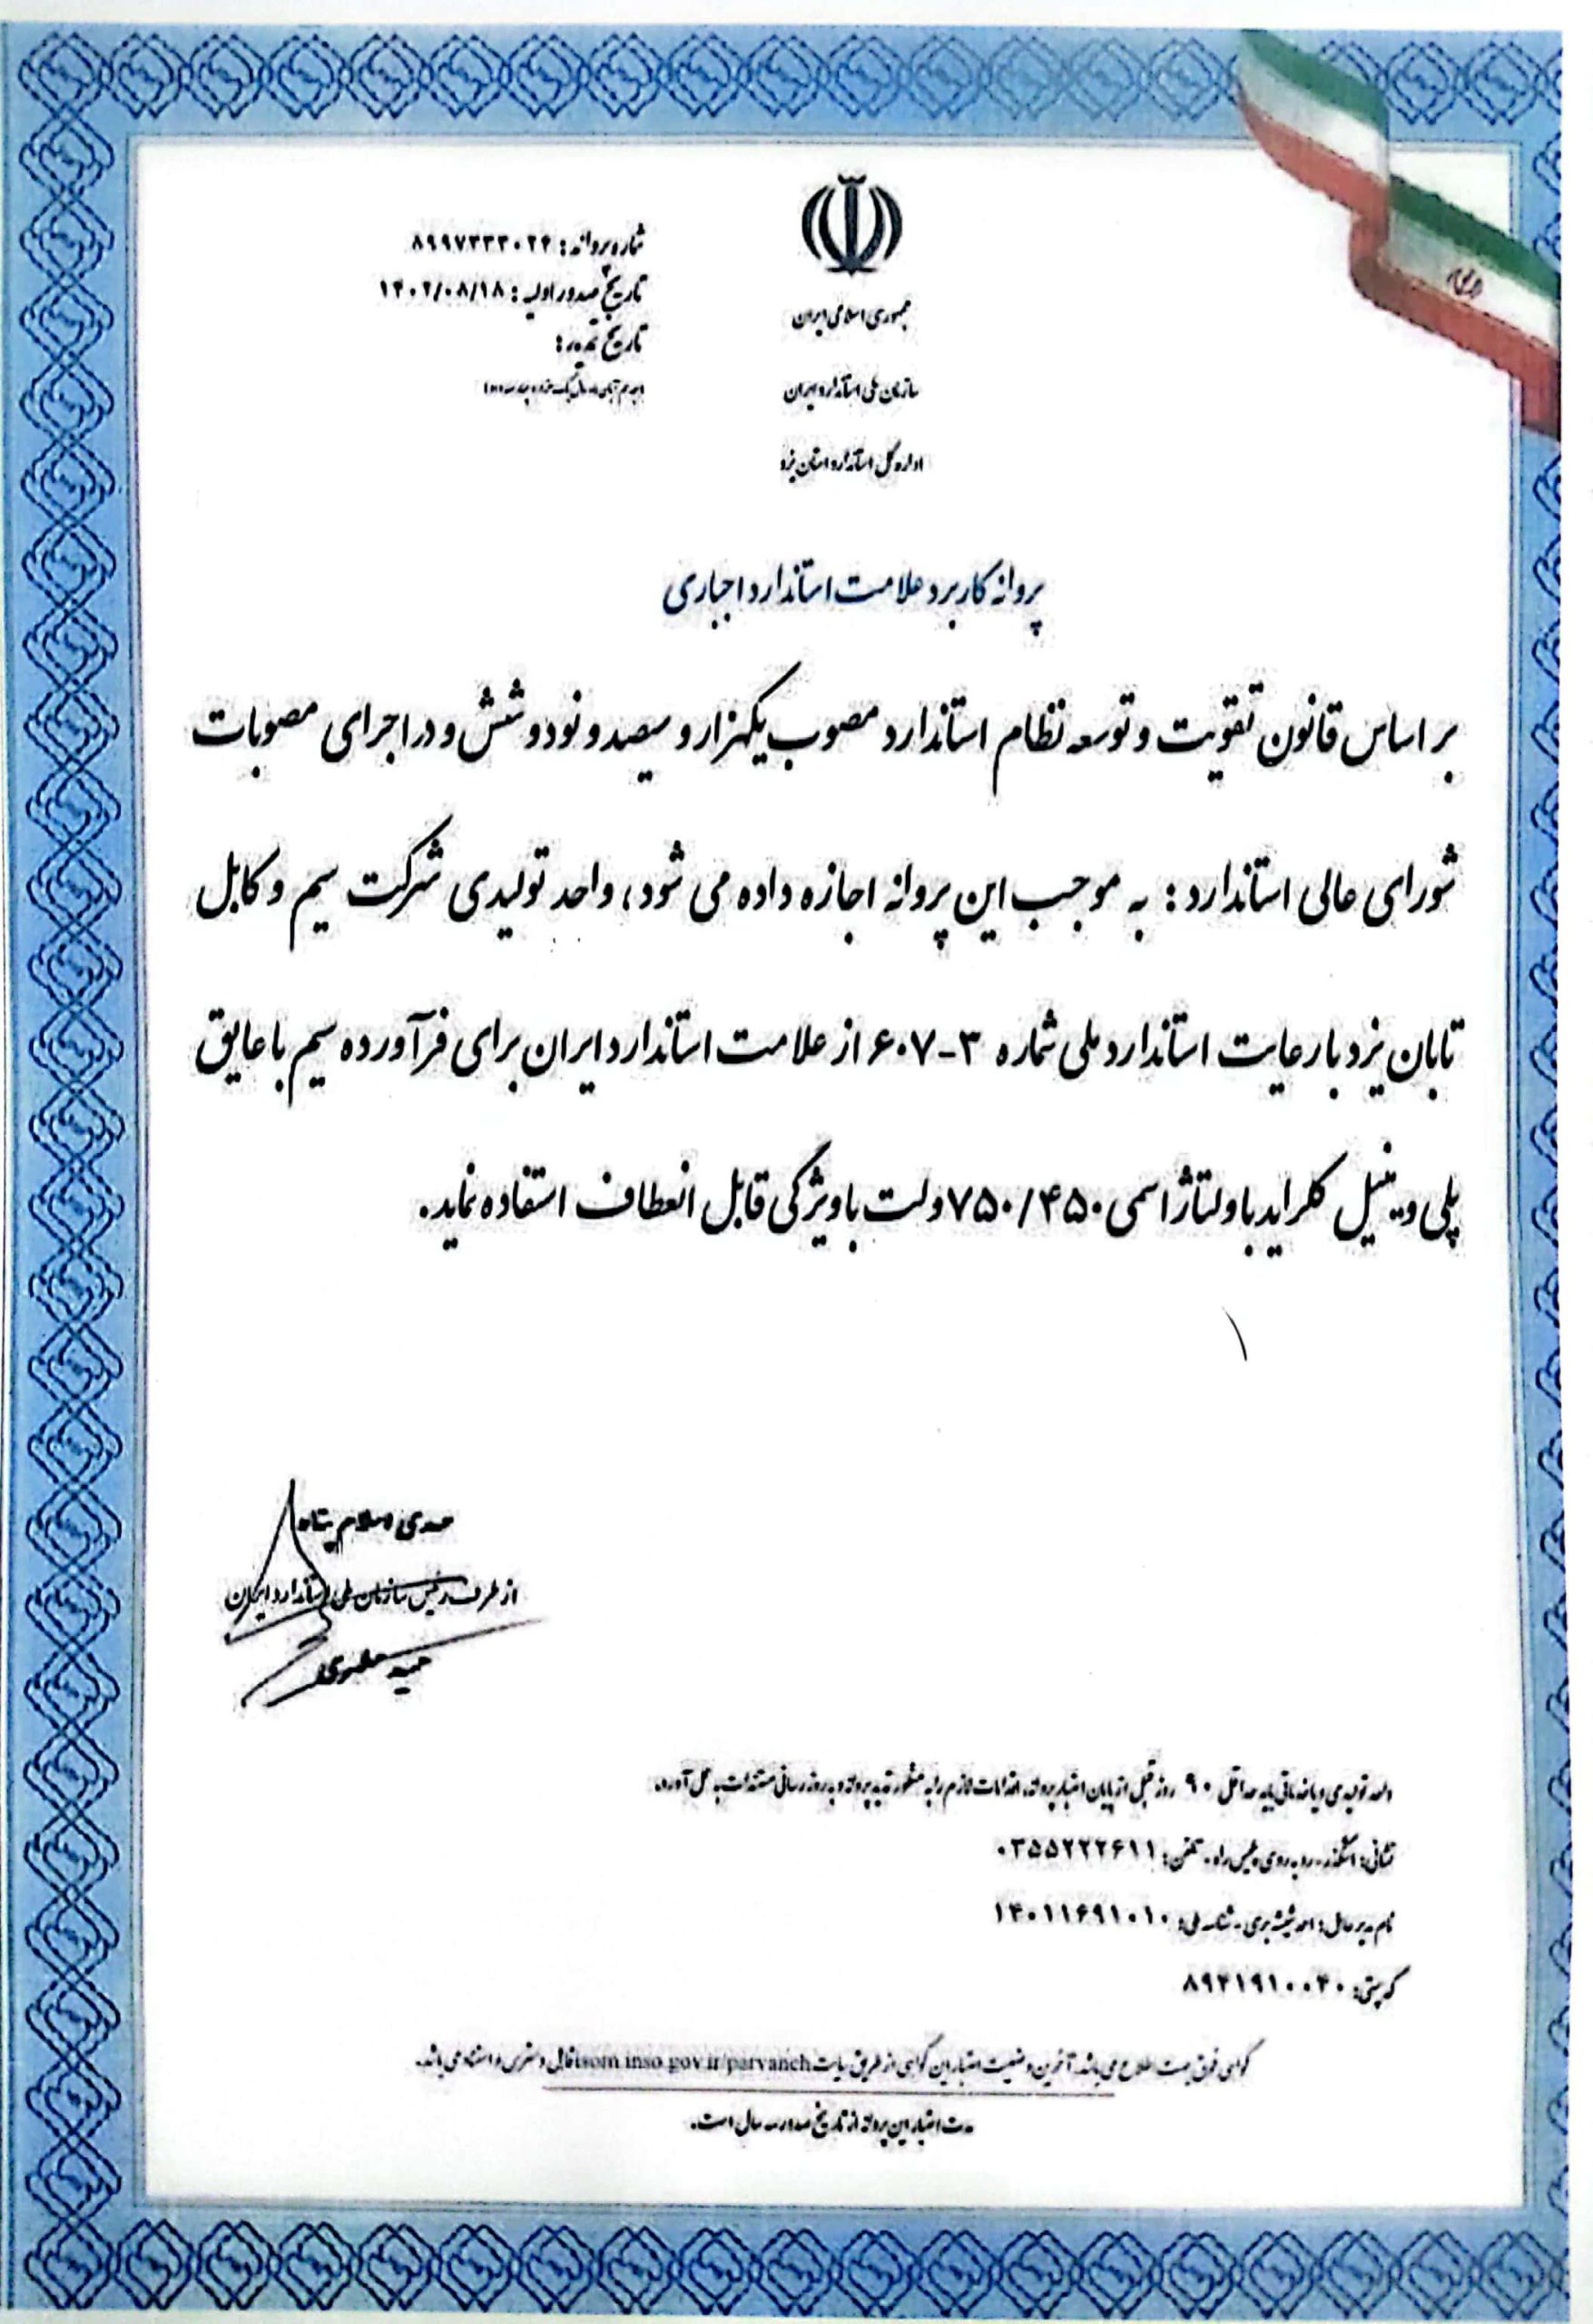 شماره پروانه: ۸۹۹۷۳۳۳۰۲۴
تاریخ صدور اولیه: ۱۴۰۲/۰۸/۱۸
تاریخ تمدید:
جمهوری اسلامی ایران
سازمان ملی استاندارد ایران
اداره کل استاندارد استان یزد
پروانه کاربرد علامت استاندارد اجباری
بر اساس قانون تقویت و توسعه نظام استاندارد مصوب یکهزار و سیصد و نود و شش و در اجرای مصوبات
شورای عالی استاندارد: به موجب این پروانه اجازه داده می شود، واحد تولیدی شرکت سیم و کابل
تابان یزد با رعایت استاندارد ملی شماره ۳-۶۰۷ از علامت استاندارد ایران برای فرآورده سیم با عایق
پلی وینیل کلراید با ولتاژ اسمی ۷۵۰/۴۵۰ ولت با ویژگی قابل انعطاف استفاده نماید.
مهدی اسلام پناه
از طرف رئیس سازمان ملی استاندارد ایران
حمید
واحد تولیدی و یا خدماتی باید حداقل ۹۰ روز قبل از پایان اعتبار پروانه، اقدامات لازم را به منظور تمدید پروانه و به روز رسانی مستندات به عمل آورد.
نشانی: اشکذر- رو به روی پلیس راه - تلفن: ۰۳۵۵۲۲۲۶۱۱
نام مدیر عامل: شیشه بری - شناسه ملی: ۱۴۰۱۱۶۹۱۰۱۰
کد پستی: ۸۹۴۱۹۱۰۰۴۰
گواهی فوق جهت اطلاع می باشد. آخرین وضعیت اعتبار این گواهی از طریق سایت isom.inso.gov.ir/parvaneh قابل دسترسی و استناد می باشد.
مدت اعتبار این پروانه از تاریخ صدور سه سال است.